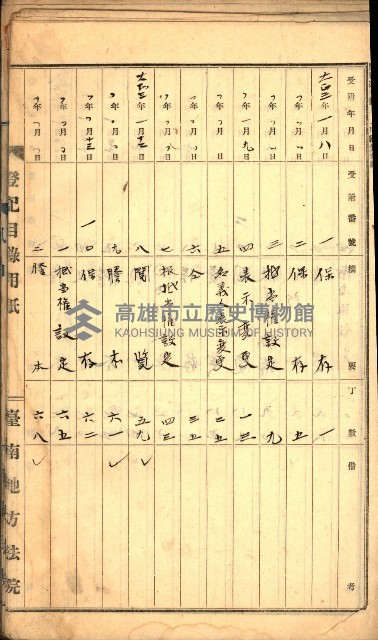 受附年月日 受附番號 摘要 丁數 備考
大正三年一月八日 一 保存 一
〃年〃月〃日 二 保存 五
〃年〃月〃日 三 抵當權設定 九
〃年一月九日 四 表示變更 一三
〃年〃月〃日 五 名義人表示變更 二五
〃年〃月〃日 六 仝 三五
〃年〃月〃日 七 根抵當權設定 四三
大正三年一月十二日 八 閱覽 五九 ✓
〃年〃月〃日 九 謄本 六一 ✓
〃年〃月十三日 一〇 保存 六二
〃年〃月〃日 一 抵當權設定 六五
〃年〃月〃日 二 謄本 六八 ✓
登記目錄用紙
臺南地方法院
高雄市立歷史博物館
KAOHSIUNG MUSEUM OF HISTORY